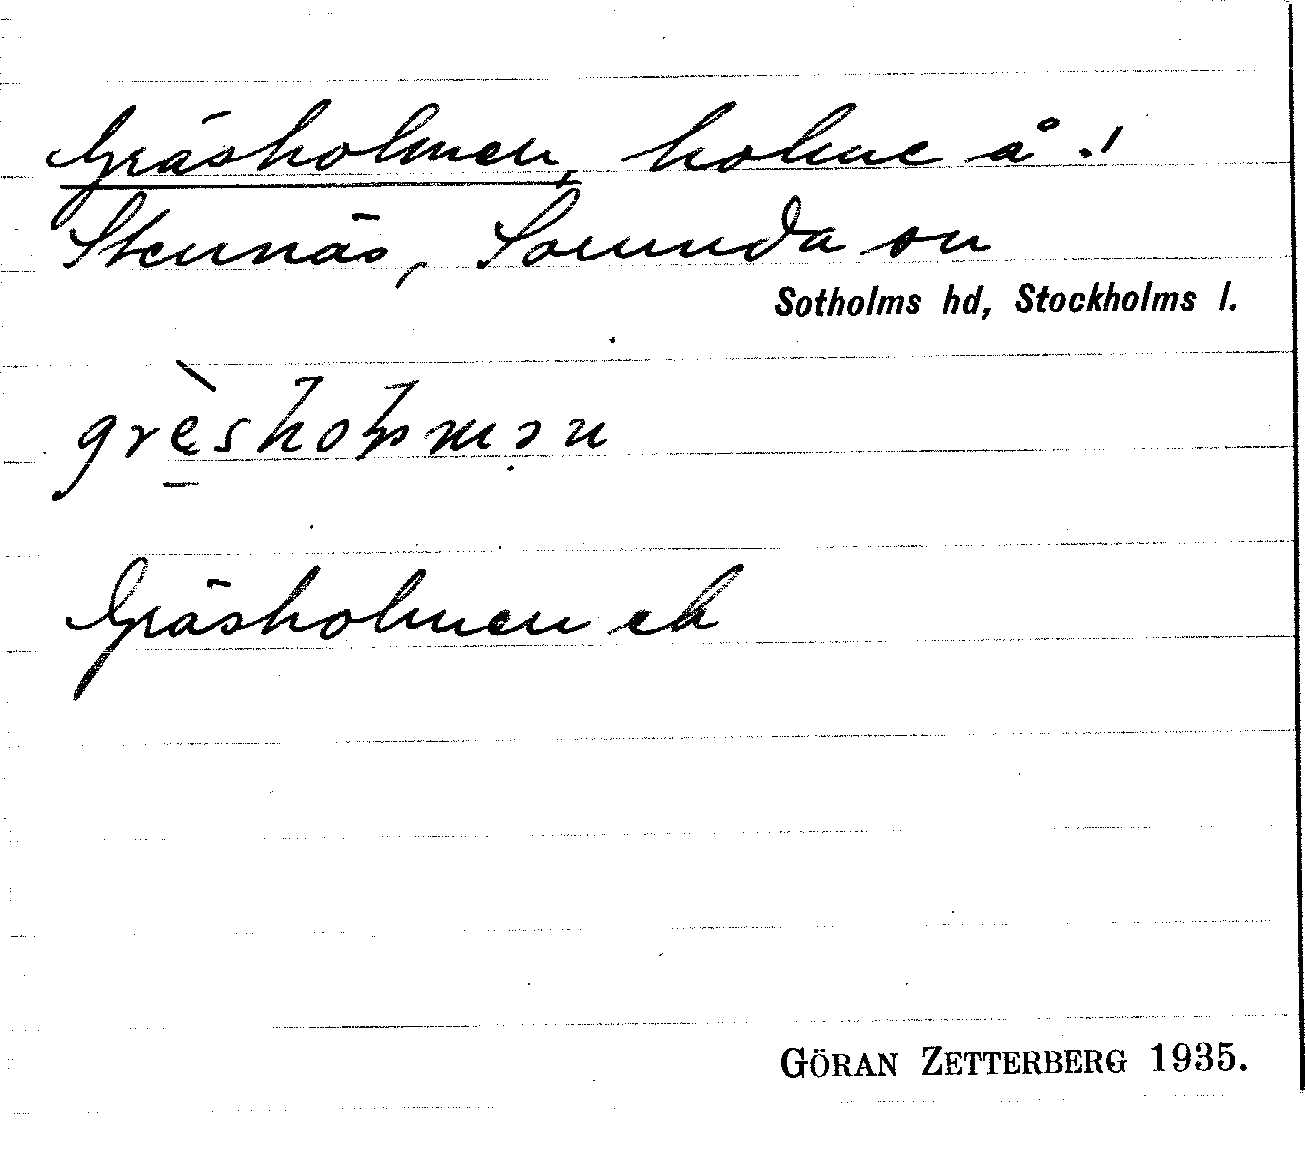 Gräsholmen, holme å .!
Stennäs, Sorunda sn
Sotholms hd, Stockholms l.
Gräsholmen ek
GÖRAN ZETTERBERG 1935.